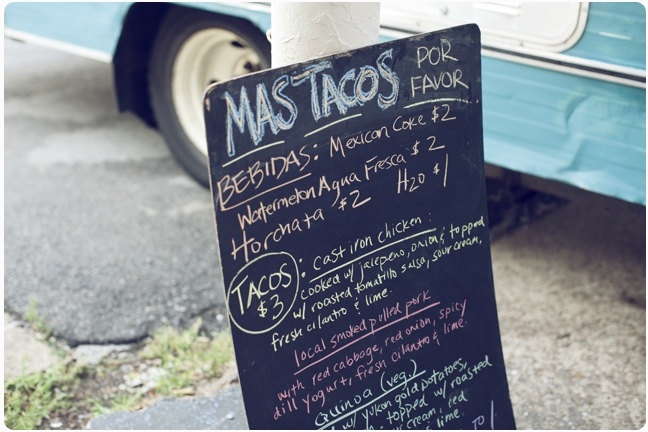 MAS TACOS POR FAVOR
BEBIDAS: Mexican Coke $2
Watermelon Agua Fresca $2
Horchata $2 H2O $1
TACOS $3 : cast iron chicken:
cooked w/ jalepeno, onion & topped
w/ roasted tomatillo salsa, sour cream,
fresh cilantro & lime.
local smoked pulled pork
with red cabbage, red onion, spicy
dill yogurt, fresh cilantro & lime.
Quinoa (veg.)
w/ yukon gold potatoes,
topped w/ roasted
cream, red
& lime.